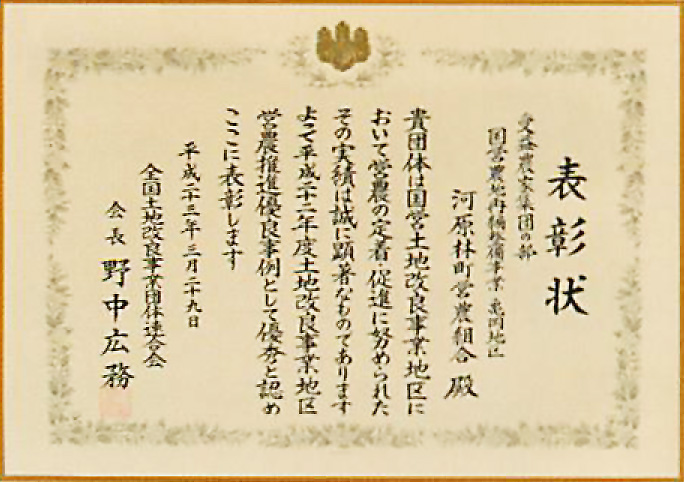 表彰状
受益農家集団の部
国営農地再編整備事業 亀岡地区
河原林町営農組合 殿
貴団体は国営土地改良事業地区に
おいて営農の定着・促進に努められた
その実績は誠に顕著なものであります
よって平成二十二年度土地改良事業地区
営農推進優良事例として優秀と認め
ここに表彰します
平成二十三年三月二十九日
全国土地改良事業団体連合会
会長 野中広務